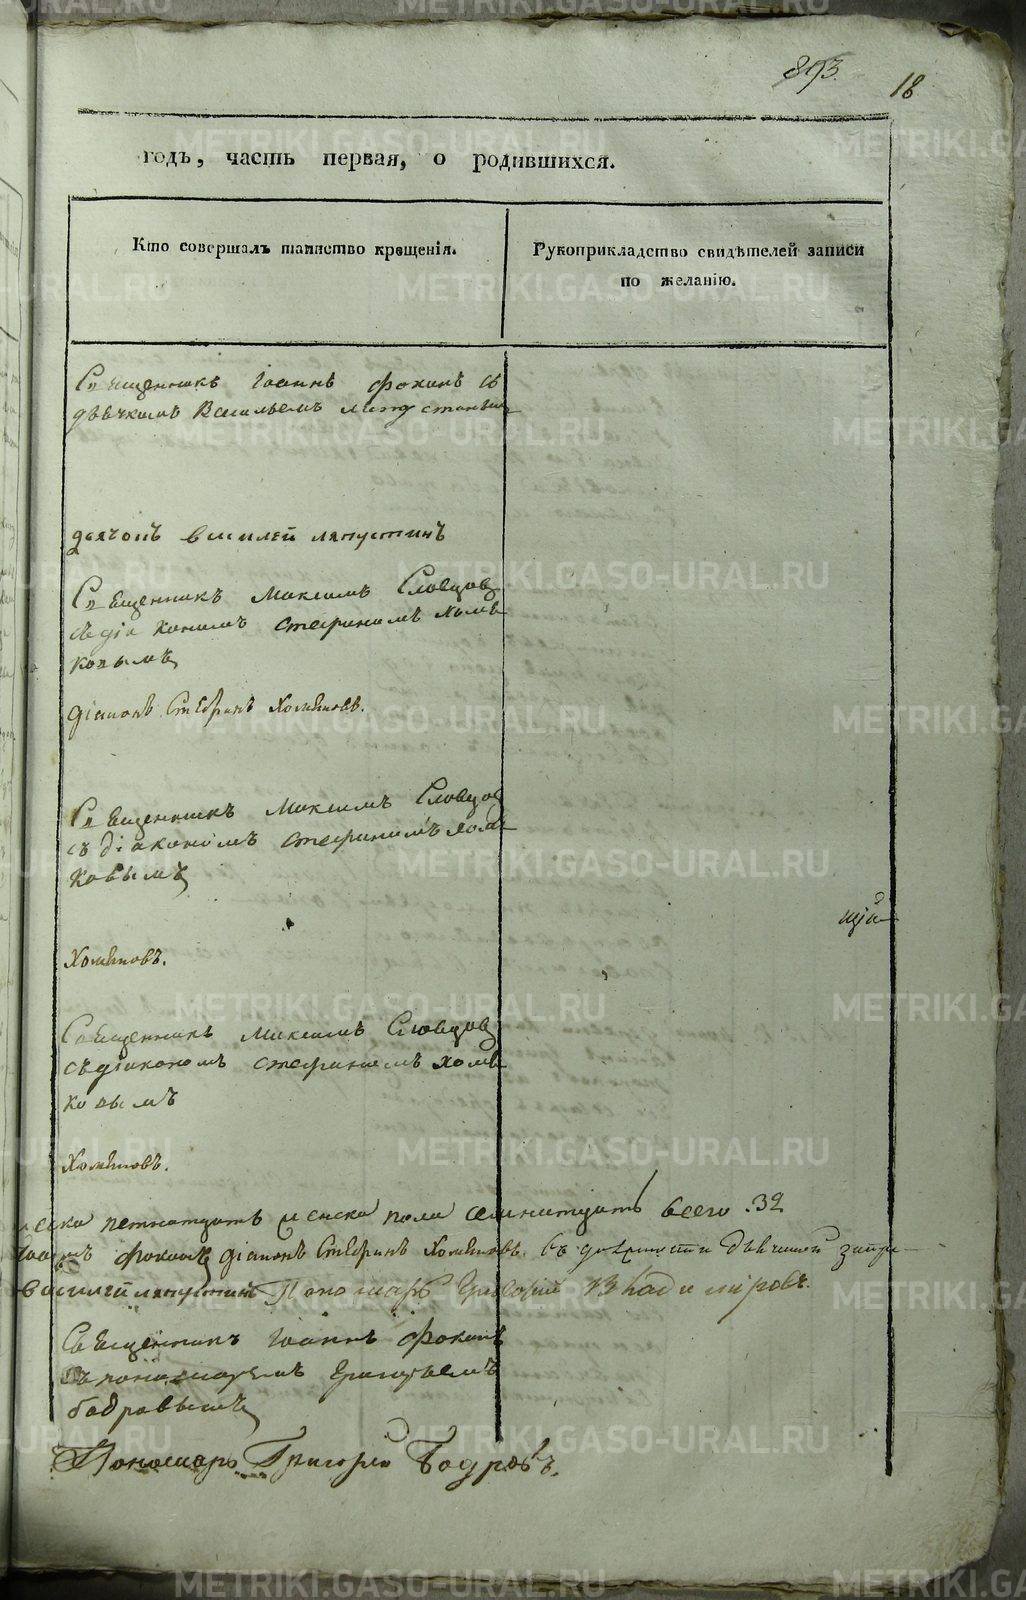 893.
18
годъ, часть первая, о родившихся.
Кто совершалъ таинство крещенія.
Рукоприкладство свидѣтелей записи
по желанію.
Священникъ Іоаннъ Фокинъ съ
дьячкомъ Васильемъ
дьячокъ василей ляпустинъ
Священникъ Максимъ Словцовъ
съ діакономъ Стефаномъ Хомя
ковымъ
діаконъ Стефанъ Хомяковъ.
Священникъ Максимъ Словцов
съ діакономъ Стефаномъ Хомя
ковымъ
щій
Хомяковъ.
Священникъ Максимъ Словцовъ
съ діакономъ Стефаномъ Хомя
ковымъ
Хомяковъ.
пола всего 32
Фокинъ діаконъ Стефанъ Хомяковъ. въ должности
василей ляпустинъ Пономарь
Священникъ Іоаннъ Фокинъ
съ пономаремъ Григорьемъ
бодровымъ
Пономарь Григорій Бодровъ.
METRIKI.GASO-URAL.RU